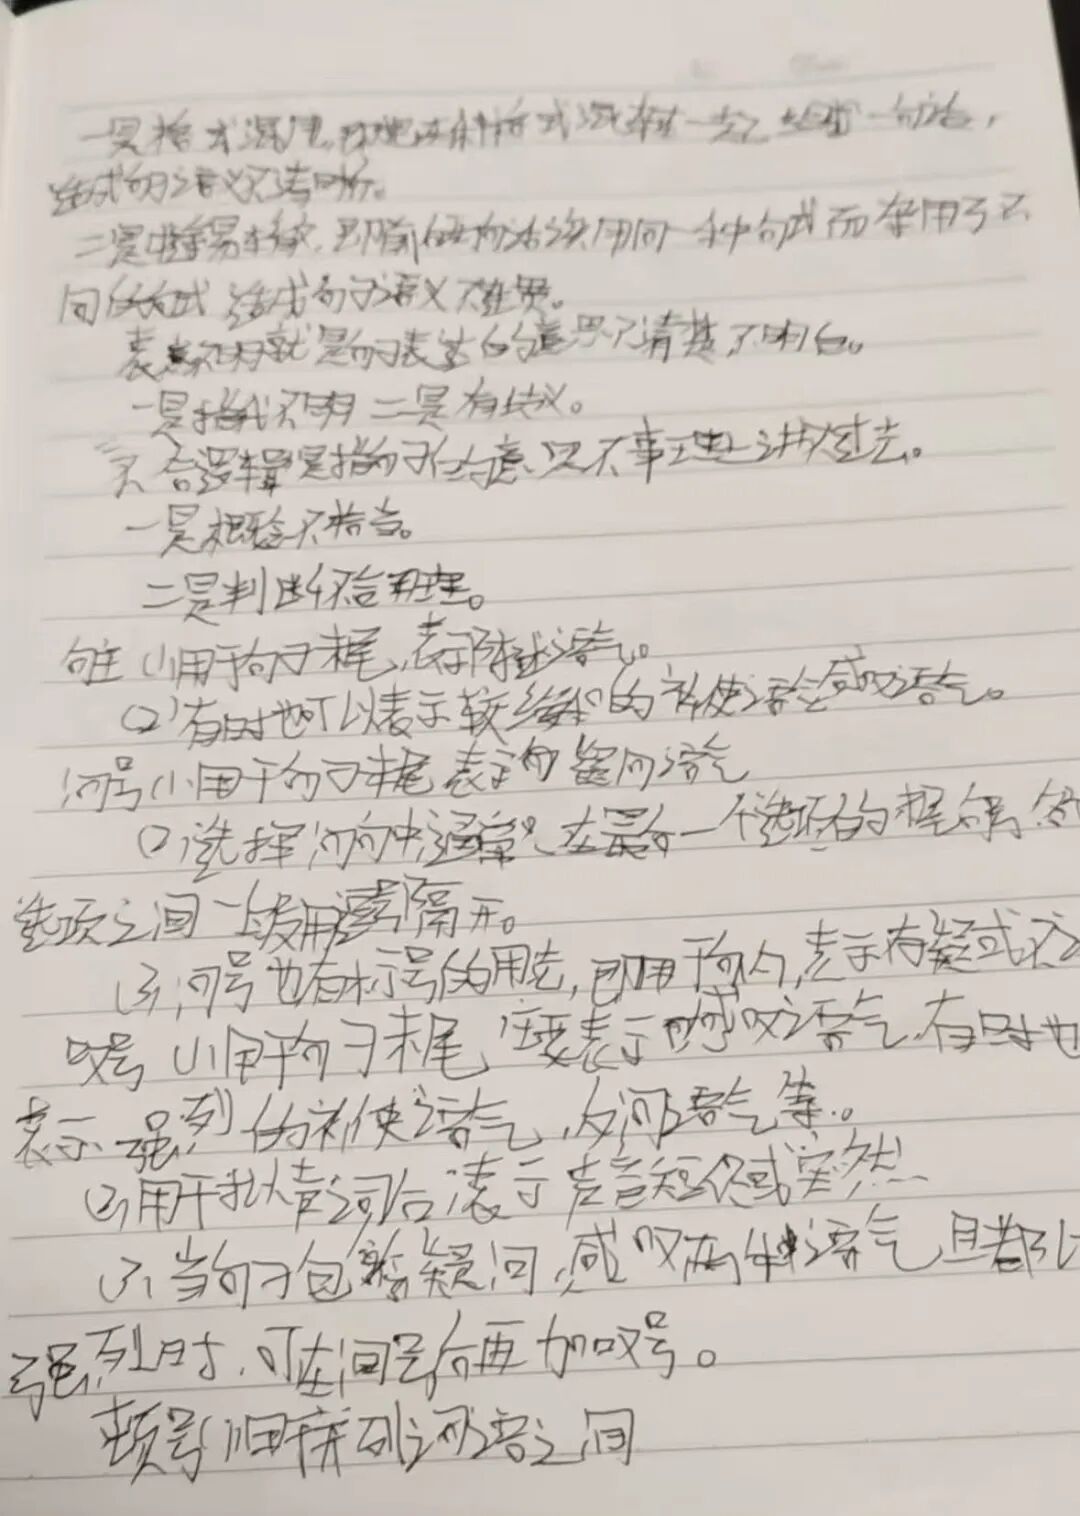 一是格式混乱,即把两种格式混杂在一起 一句话,
造成句子语义不清晰。
二是中途易辙,即前 句话该用同一种句式而杂用了不
同的句式 造成句子语义不连贯。
表意不明就是句子表达的意思不清楚不明白。
一是指代不明 二是有歧义。
不合逻辑是指句子在 意 事理上讲不过去。
一是概念不恰当。
二是判断不合事理。
句号 (1)用于句子末尾,表示陈述语气。
(2)有时也可以表示较缓和的祈使语气感叹语气。
问号(1)用于句子末尾 表示 疑问语气
(2)选择问句中通常 在最后一个选项的末尾 问号 各
选项之间一般用逗号隔开。
(3)问号也有标号的用法,即用于句内,表示存疑或不
叹号 (1)用于句子末尾 主要表示 感叹语气,有时也
表示强烈的祈使语气,反问语气等。
(2)用于拟声词后 表示声音短促或突然
(3)当句子包含疑问,感叹两种语气且都比
强烈时,可在问号后再加叹号。
顿号(1)用于并列词语之间